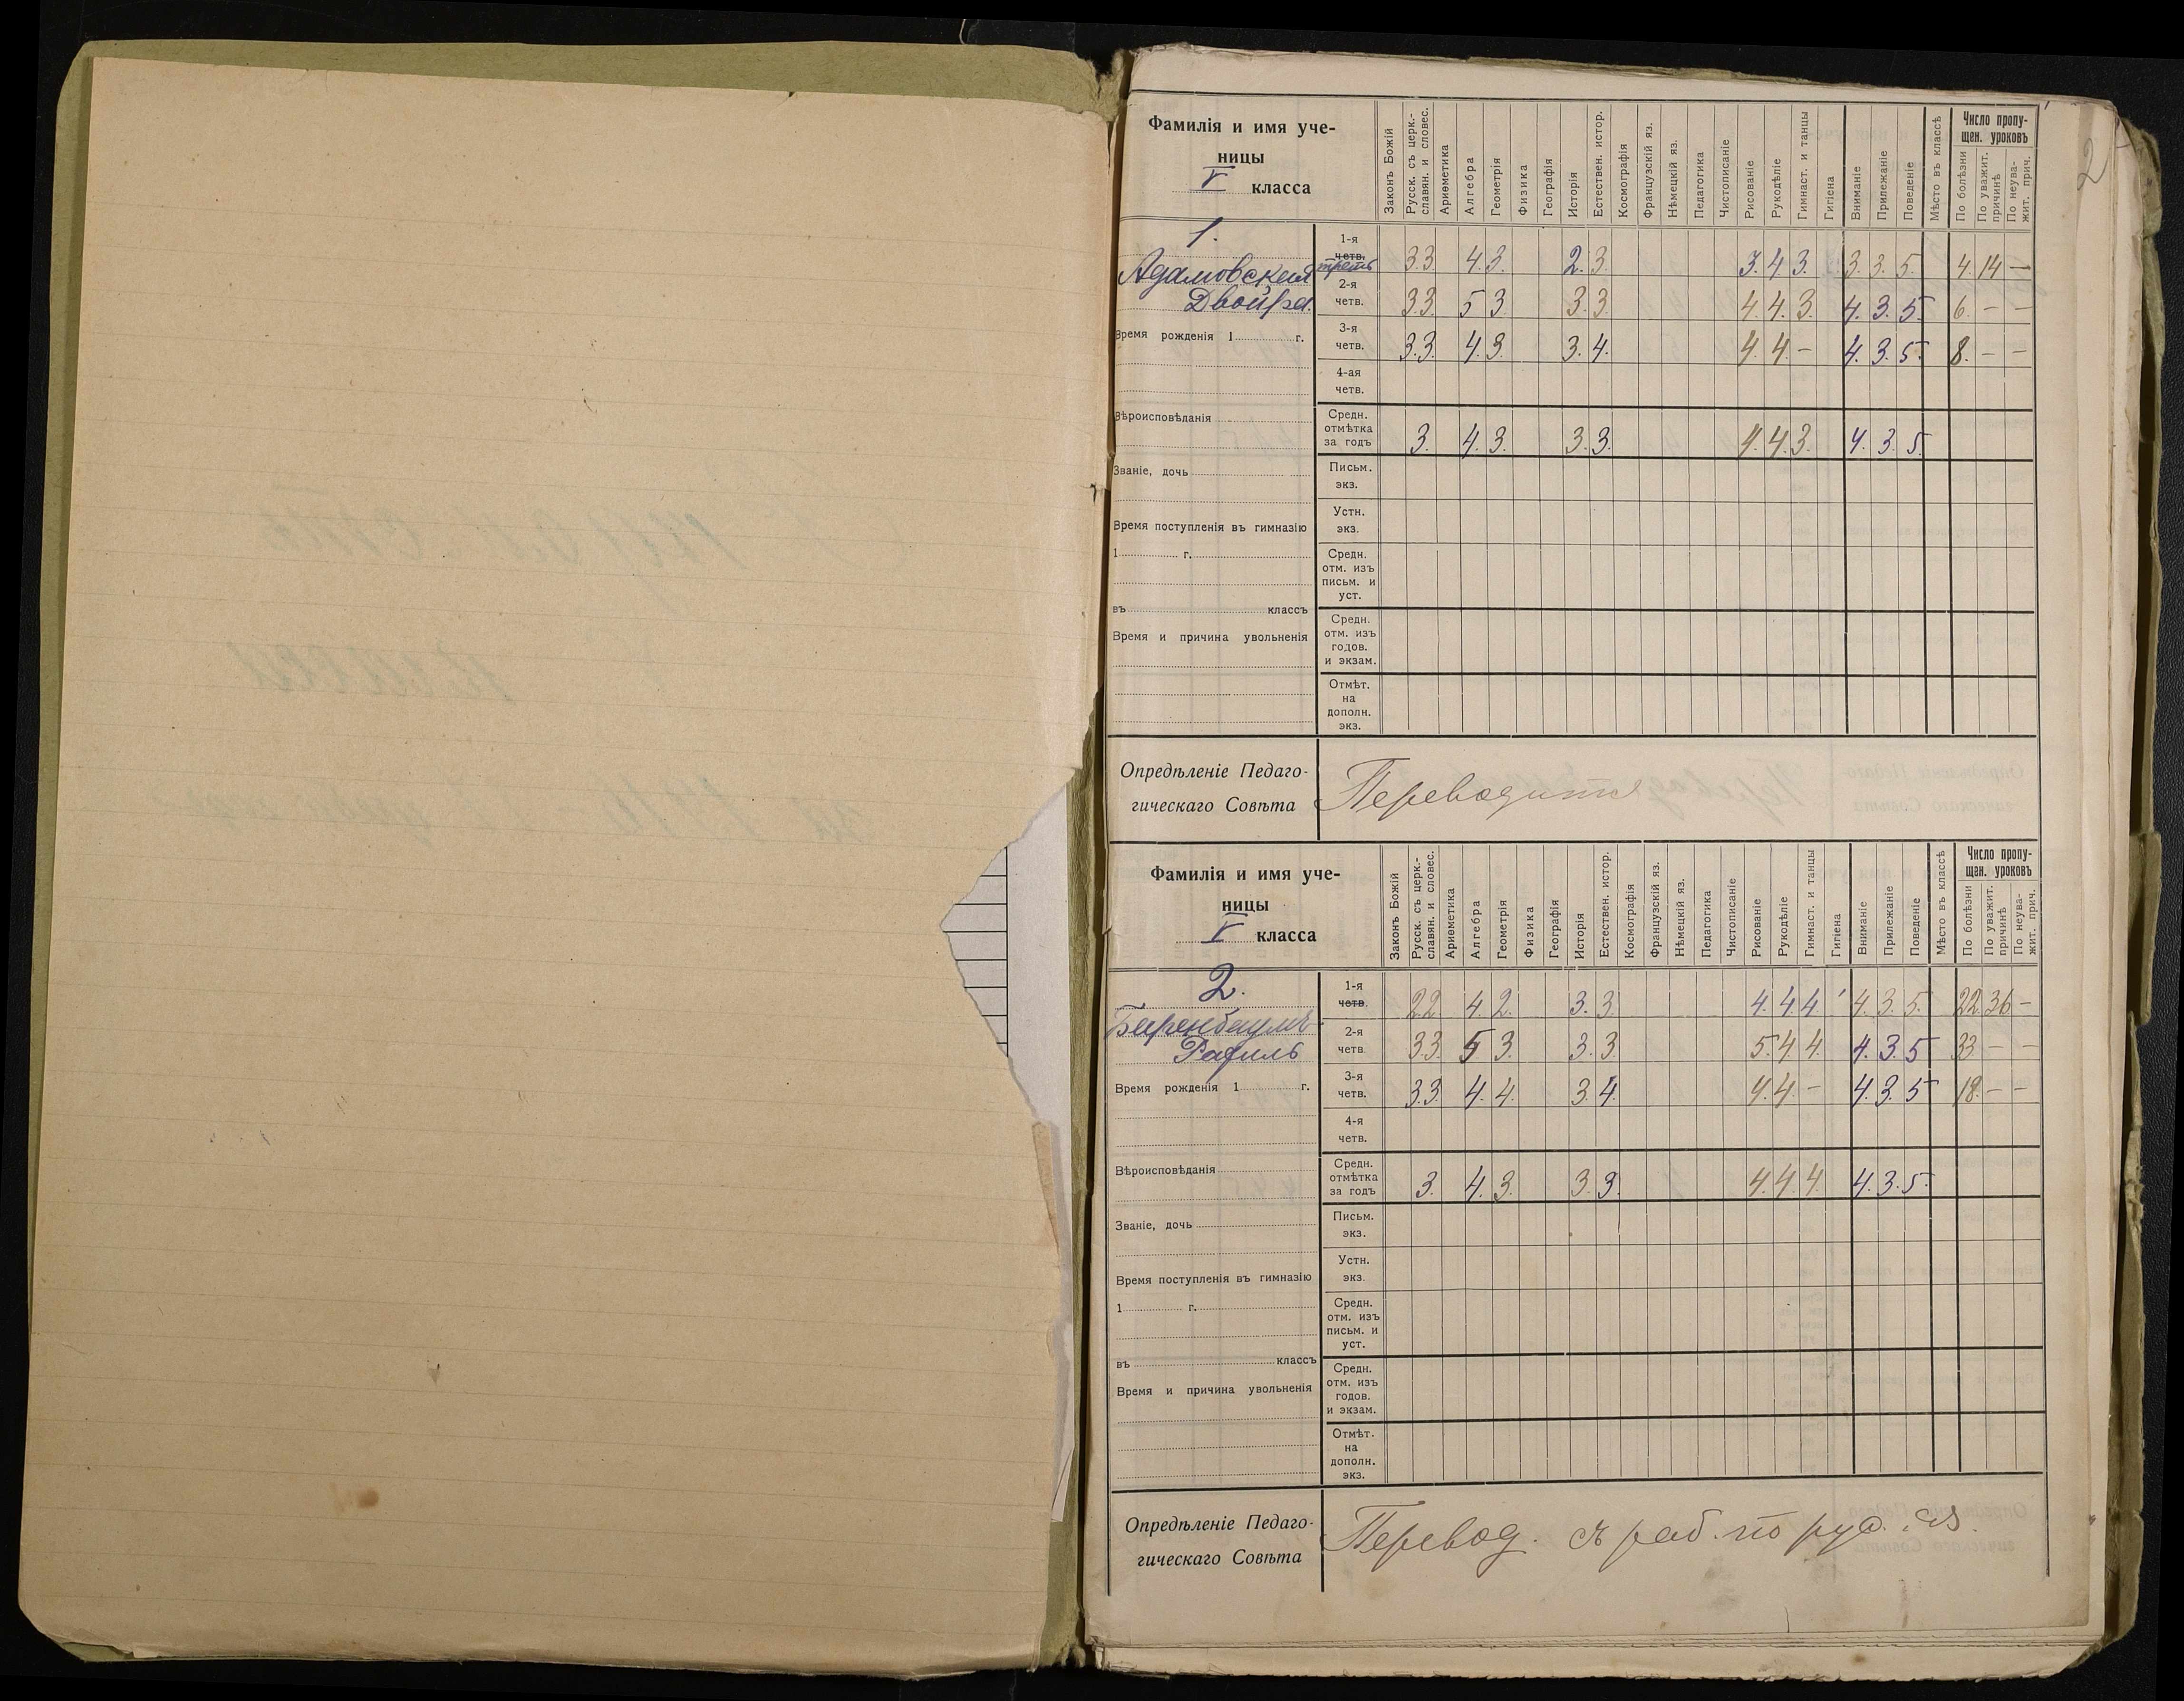 2
Фамилія и имя уче-
ницы
V класса
Законъ Божій
Русск. съ церк.-
славян. и словес.
Ариѳметика
Алгебра
Геометрія
Физика
Географія
Исторія
Естествен. истор.
Космографія
Французскій яз.
Нѣмецкій яз.
Педагогика
Чистописаніе
Рисованіе
Рукодѣліе
Гимнаст. и танцы
Гигіена
Вниманіе
Прилежаніе
Поведеніе
Мѣсто въ классѣ
Число пропу-
щен. уроковъ
По болѣзни
По уважит.
причинѣ
По неува-
жит. прич.
1.
Адамовская
Двойра.
Время рожденія 1 г.
Вѣроисповѣданія
Званіе, дочь
Время поступленія въ гимназію
1 г.
въ классъ
Время и причина увольненія
1-я
четв.
треть
33 4. 3. 2. 3. 3. 4. 3. 3. 3. 5. 4. 14 —
2-я
четв.
33. 5 3. 3. 3. 4. 4. 3. 4. 3. 5. 6. — —
3-я
четв.
3.3. 4. 3. 3. 4. 4. 4. — 4. 3. 5. 8. — —
4-ая
четв.
Средн.
отмѣтка
за годъ
3. 4. 3. 3. 3. 4. 4. 3. 4. 3. 5.
Письм.
экз.
Устн.
экз.
Средн.
отм. изъ
письм. и
уст.
Средн.
отм. изъ
годов.
и экзам.
Отмѣт.
на
дополн.
экз.
Опредѣленіе Педаго-
гическаго Совѣта
Переводится
Фамилія и имя уче-
ницы
V класса
Законъ Божій
Русск. съ церк.-
славян. и словес.
Ариѳметика
Алгебра
Геометрія
Физика
Географія
Исторія
Естествен. истор.
Космографія
Французскій яз.
Нѣмецкій яз.
Педагогика
Чистописаніе
Рисованіе
Рукодѣліе
Гимнаст. и танцы
Гигіена
Вниманіе
Прилежаніе
Поведеніе
Мѣсто въ классѣ
Число пропу-
щен. уроковъ
По болѣзни
По уважит.
причинѣ
По неува-
жит. прич.
2.
Биренбаумъ
Рафиль
Время рожденія 1 г.
Вѣроисповѣданія
Званіе, дочь
Время поступленія въ гимназію
1 г.
въ классъ
Время и причина увольненія
1-я
четв.
22 4. 2. 3. 3. 4. 4. 4 4. 3. 5. 22. 36 —
2-я
четв.
33. 5 3. 3. 3. 5. 4. 4. 4. 3. 5 33 — —
3-я
четв.
33. 4. 4. 3. 4. 4. 4. — 4. 3. 5 18. — —
4-я
четв.
Средн.
отмѣтка
за годъ
3. 4. 3. 3. 3. 4. 4. 4. 4. 3. 5.
Письм.
экз.
Устн.
экз.
Средн.
отм. изъ
письм. и
уст.
Средн.
отм. изъ
годов.
и экзам.
Отмѣт.
на
дополн.
экз.
Опредѣленіе Педаго-
гическаго Совѣта
Перевод. съ раб. по рус. яз.